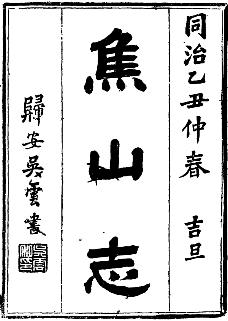 同治乙丑仲春 吉旦
焦山志
歸安吳雲書